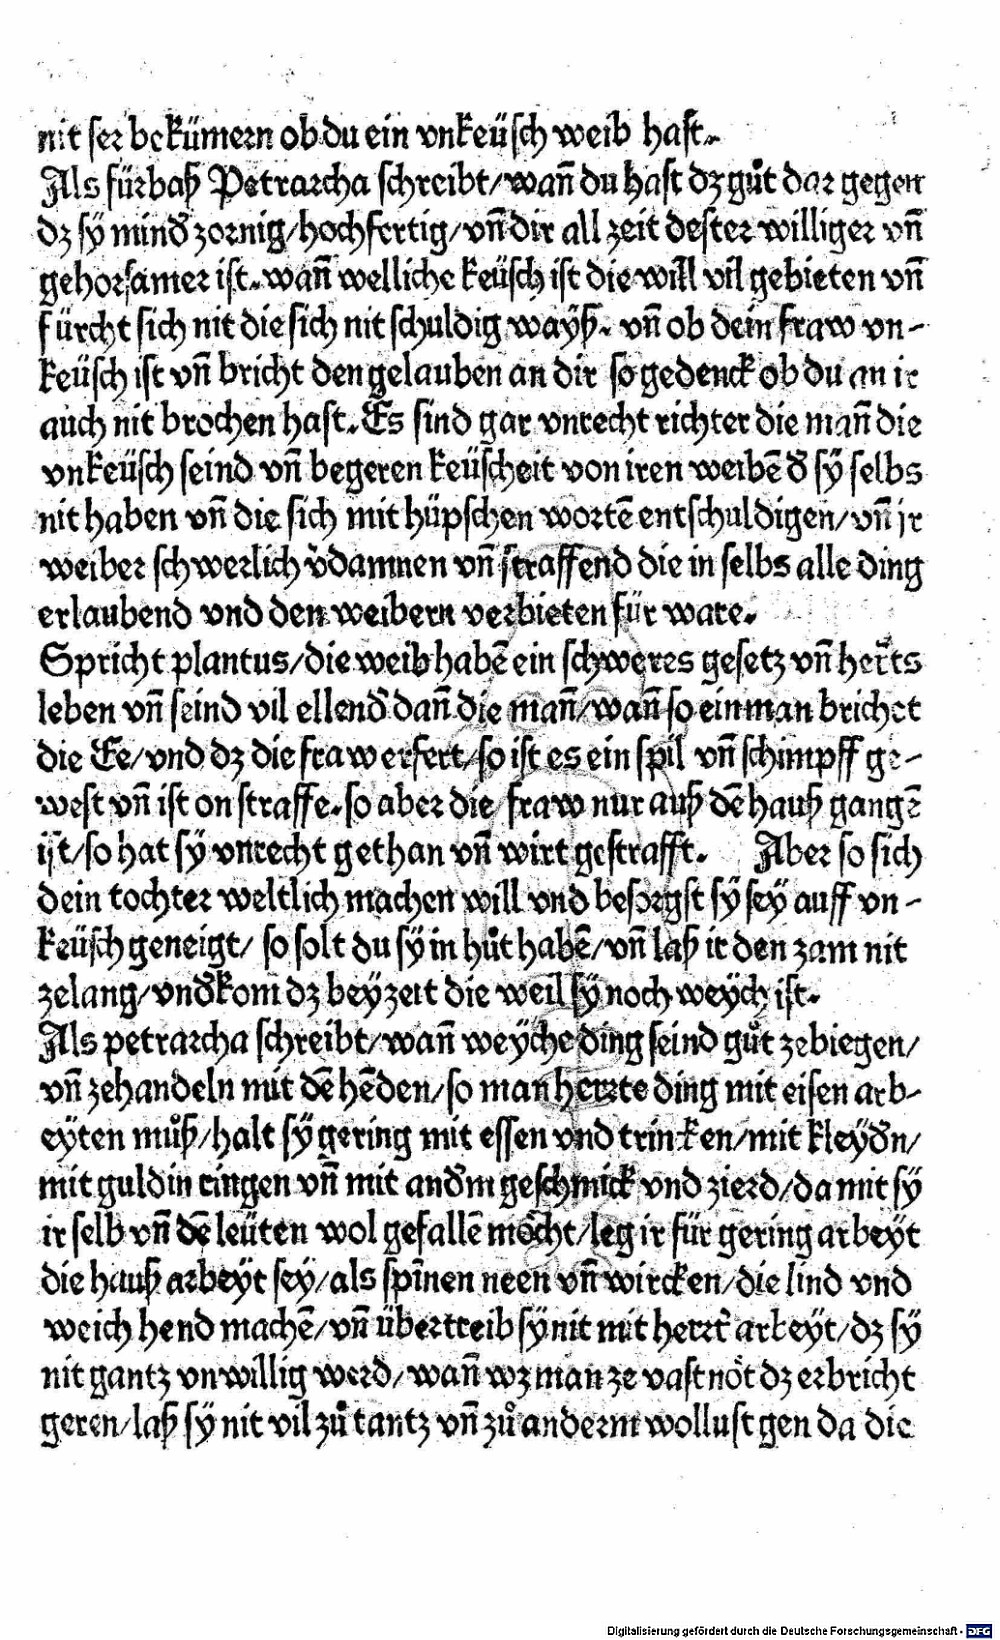 nit ser bekümern ob du ein vnkeüsch weib hast.
Als fürbaß Petrarcha schreibt/wan̄ du hast dz gůt dar gegen
dz sy mind̕ zornig/hochfertig/vn̄ dir all zeit dester williger vn̄
gehorsamer ist. wan̄ welliche keüsch ist die will vil gebieten vn̄
fürcht sich nit die sich nit schuldig wayß. vn̄ ob dein fraw vn-
keüsch ist vn̄ bricht den gelauben an dir so gedenck ob du an ir
auch nit brochen hast. Es sind gar vnrecht richter die man̄ die
vnkeüsch seind vn̄ begeren keüscheit von iren weibē d̕ sÿ selbs
nit haben vn̄ die sich mit hüpschen wortē entschuldigen/vn̄ jr
weiber schwerlich v̕damnen vn̄ straffend die in selbs alle ding
erlaubend vnd den weibern verbieten für ware.
Spricht plantus/die weib habē ein schweres gesetz vn̄ hert̕s
leben vn̄ seind vil ellend̕ dan̄ die man̄/wan̄ so ein man brichet
die Ee/vnd dz die fraw erfert/so ist es ein spil vn̄ schimpff ge-
west vn̄ ist on straffe. so aber die fraw nur auß dē hauß gangē
ist/so hat sÿ vnrecht gethan vn̄ wirt gestrafft. Aber so sich
dein tochter weltlich machen will vnd besorgst sÿ seÿ auff vn-
keüsch geneigt/ so solt du sÿ in hůt habē/vn̄ laß ir den zam nit
zelang/vnd̕kom dz beÿ zeit die weil sÿ noch weÿch ist.
Als petrarcha schreibt/wan̄ weÿche ding seind gůt zebiegen/
vn̄ zehandeln mit dē hēden/so man herrte ding mit eisen arb-
eÿten můß/halt sÿ gering mit essen vnd trinken/mit kleÿd̕n/
mit guldin ringen vn̄ mit and̕m geschmick vnd zierd/da mit sÿ
ir selb vn̄ dē leüten wol gefallē möcht/leg ir für gering arbeÿt
die hauß arbeÿt seÿ/als spīnen neen vn̄ wircken/die lind vnd
weich hend machē/vn̄ übertreib sÿ nit mit herrt̕ arbeÿt/dz sÿ
nit gantz vnwillig werd/wan̄ wz man ze vast nöt dz erbricht
geren/laß sÿ nit vil zů tantz vn̄ zů anderm wollust gen da die
Digitalisierung gefördert durch die Deutsche Forschungsgemeinschaft - DFG